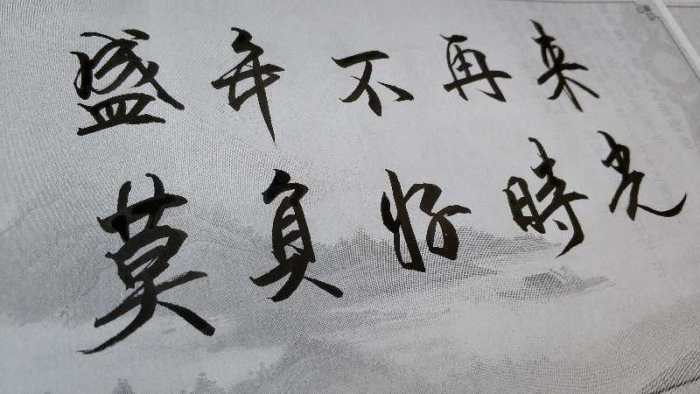 盛年不再来
莫負好時光